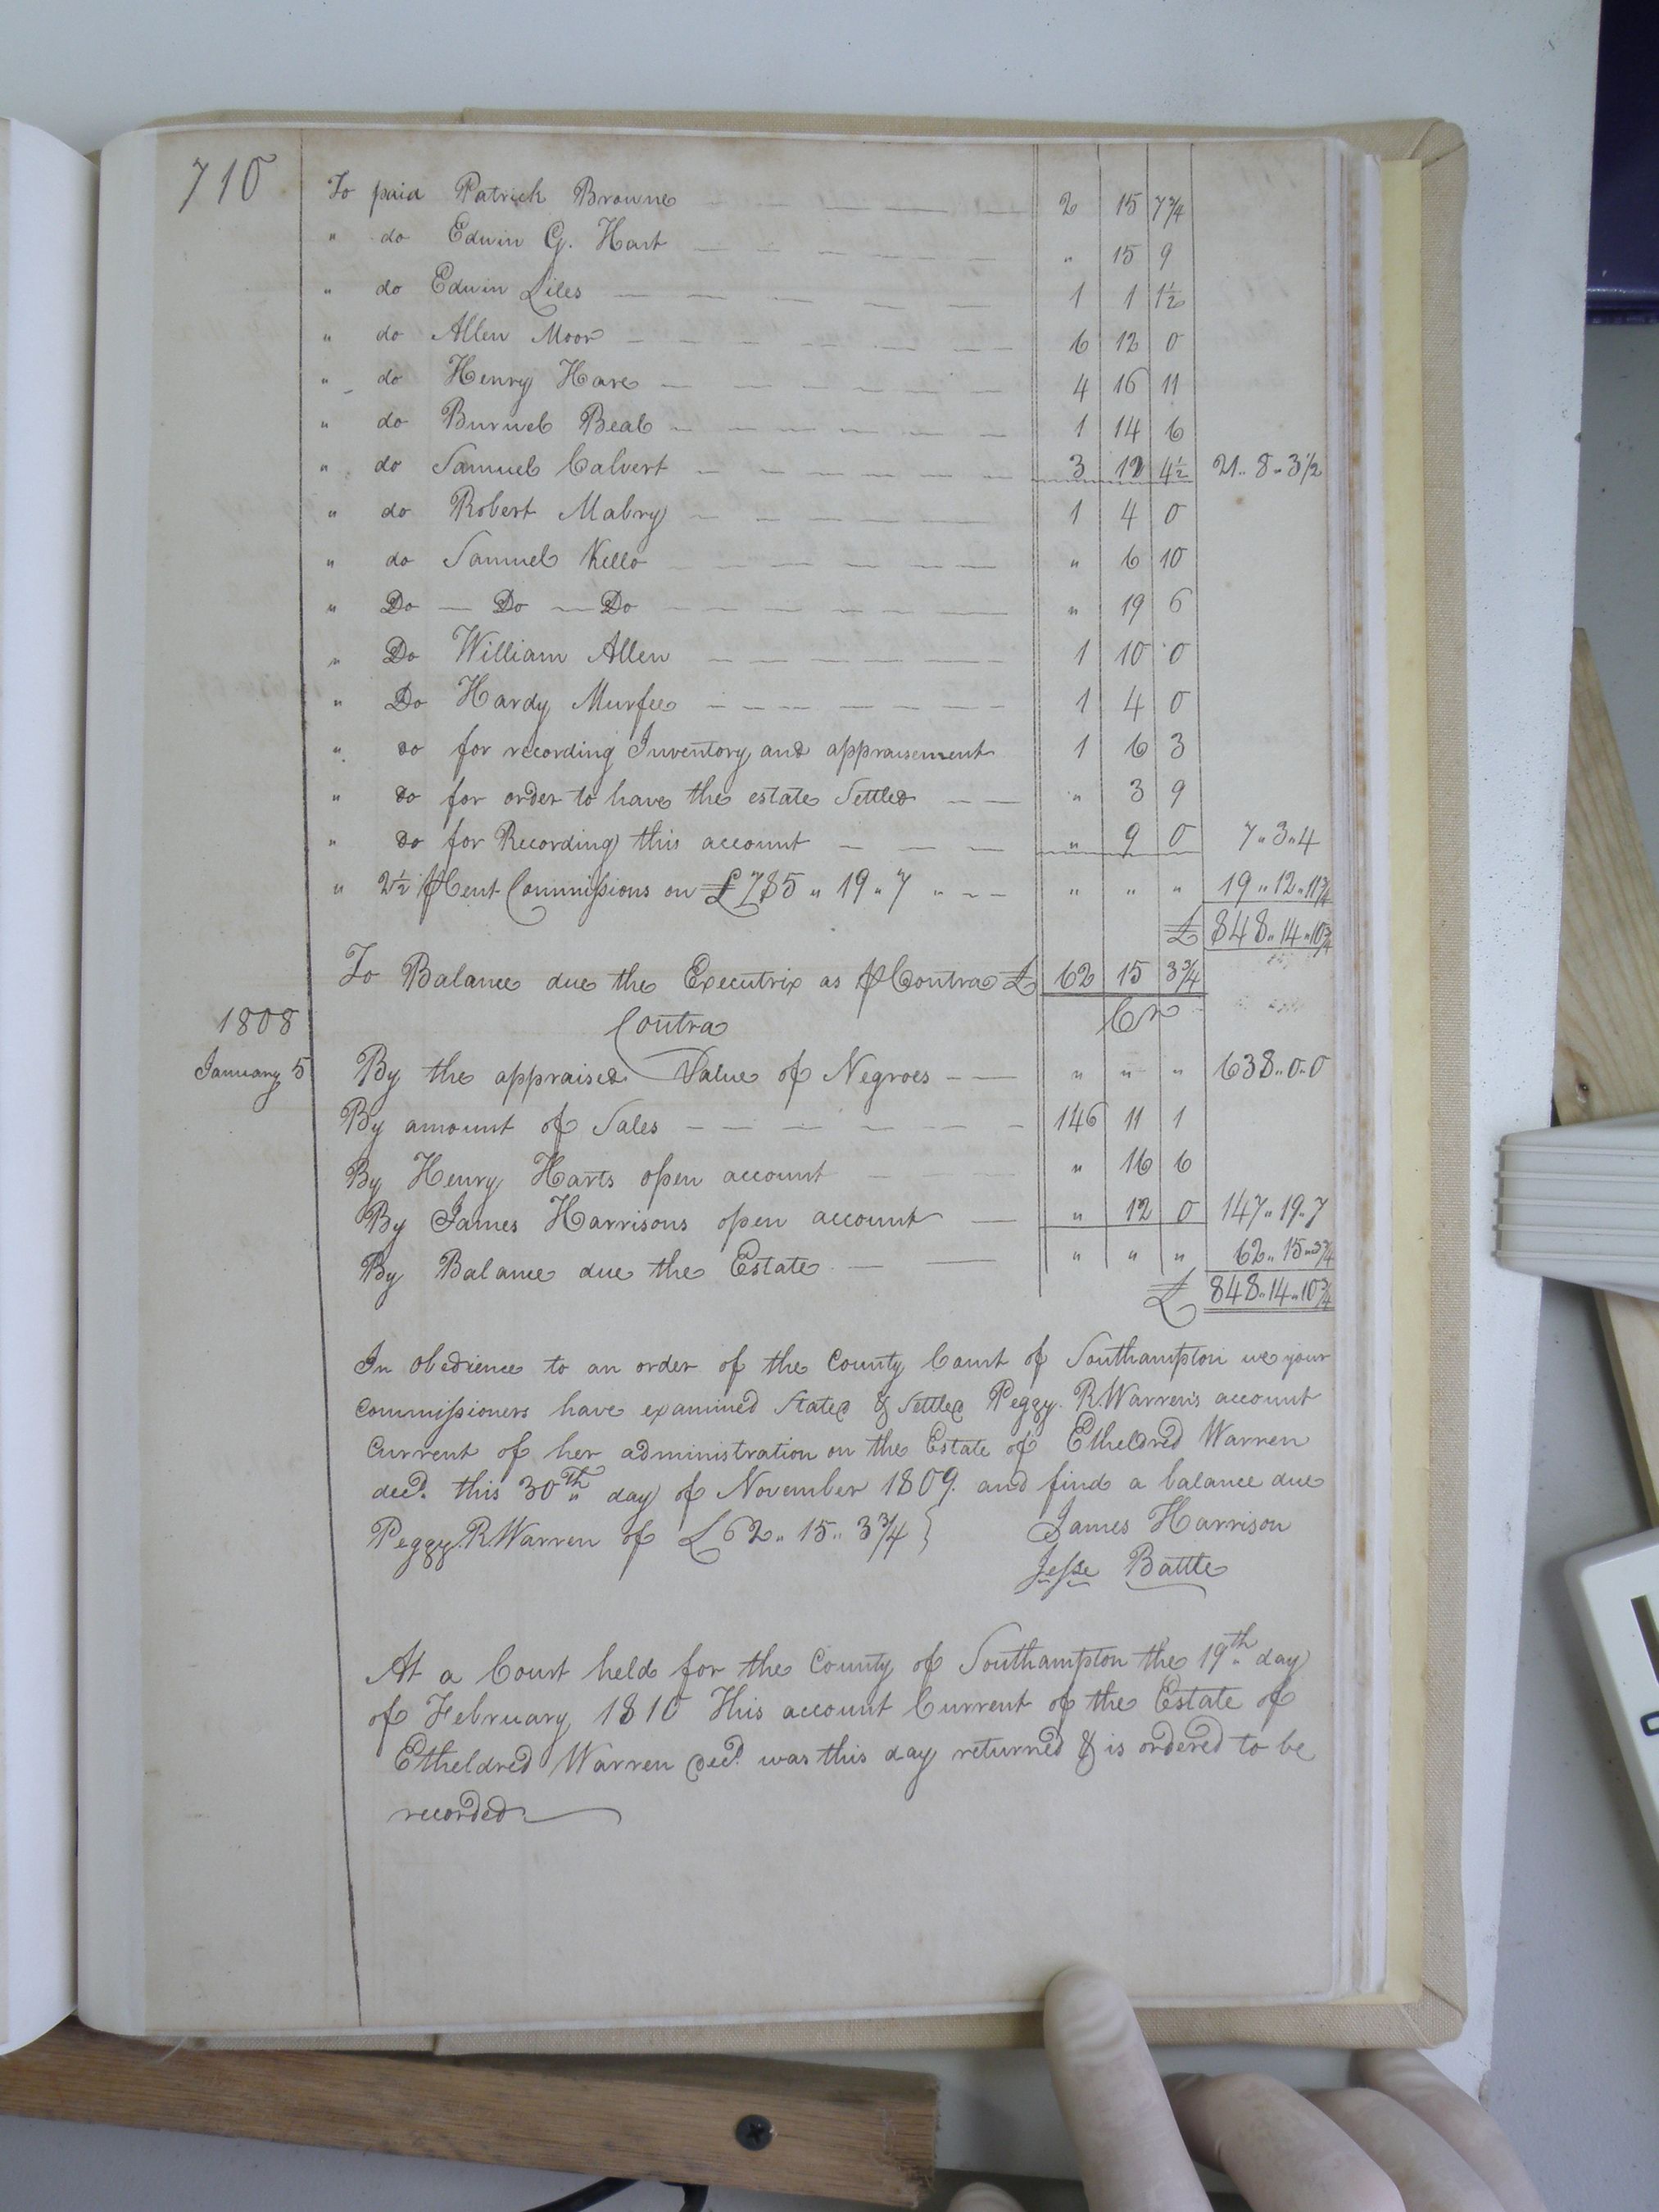 710
To paid Patrick Browne 2 15 7 3/4
" do Edwin G. Hart " 15 9
" do Edwin Liles 1 1 1 1/2
" do Allen Moor 6 12 0
" do Henry Hare 4 16 11
" do Burwel Beal 1 14 6
" do Samuel Calvert 3 12 4 1/2 21 .. 8 .. 3 1/2
" do Robert Mabry 1 4 0
" do Samuel Kello " 6 10
" Do — Do — Do " 19 6
" Do William Allen 1 10 0
" Do Hardy Murfee 1 4 0
" do for recording Inventory and appraisement 1 6 3
" do for order to have the estate Settled " 3 9
" do for Recording this account " 9 0 7 " 3 " 4
" 2 1/2 ⅌Cent Commissions on £785 " 19 " 7 " " " " 19 .. 12 .. 11 3/4
£ 848 .. 14 .. 10 3/4
To Balance due the Executrix as ⅌ Contra £ 62 15 3 3/4
1808 Contra Cr
January 5 By the appraised Value of Negroes " " " 638 .. 0 .. 0
By amount of Sales 146 11 1
By Henry Harts open account " 16 6
By James Harrisons open account " 12 0 147 .. 19 .. 7
By Balance due the Estate " " " 62 .. 15 .. 3 3/4
£ 848 .. 14 .. 10 3/4
In obedience to an order of the County Court of Southampton we your
Commissioners have examined Stated & Settled Peggy R. Warren's account
Current of her administration on the Estate of Etheldred Warren
decd. this 30th day of November 1809. and find a balance due
Peggy R Warren of £62 .. 15 .. 3 3/4 } James Harrison
Jesse Battle
At a Court held for the County of Southampton the 19th day
of February 1810 This account Current of the Estate of
Etheldred Warren decd. was this day returned & is ordered to be
recorded